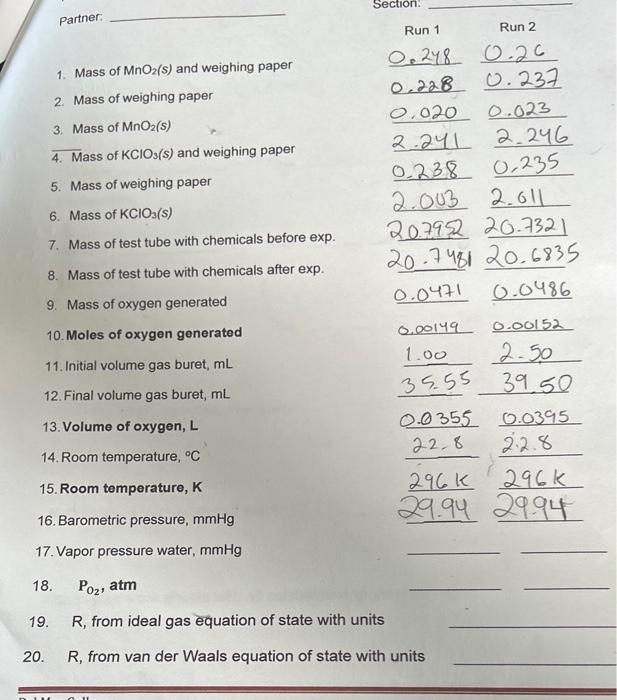 Partner: Section:
Run 1 Run 2
1. Mass of MnO₂(s) and weighing paper 0.248 0.26
2. Mass of weighing paper 0.228 0.237
3. Mass of MnO₂(s) 0.020 0.023
4. Mass of KClO₃(s) and weighing paper 2.241 2.246
5. Mass of weighing paper 0.238 0.235
6. Mass of KClO₃(s) 2.003 2.011
7. Mass of test tube with chemicals before exp. 20.7952 20.7321
8. Mass of test tube with chemicals after exp. 20.7481 20.6835
9. Mass of oxygen generated 0.0471 0.0486
10. Moles of oxygen generated 0.00149 0.00152
11. Initial volume gas buret, mL 1.00 2.50
12. Final volume gas buret, mL 35.55 39.50
13. Volume of oxygen, L 0.0355 0.0395
14. Room temperature, ºC 22.8 22.8
15. Room temperature, K 296 K 296 K
16. Barometric pressure, mmHg 29.94 29.94
17. Vapor pressure water, mmHg
18. P_O₂, atm
19. R, from ideal gas equation of state with units
20. R, from van der Waals equation of state with units